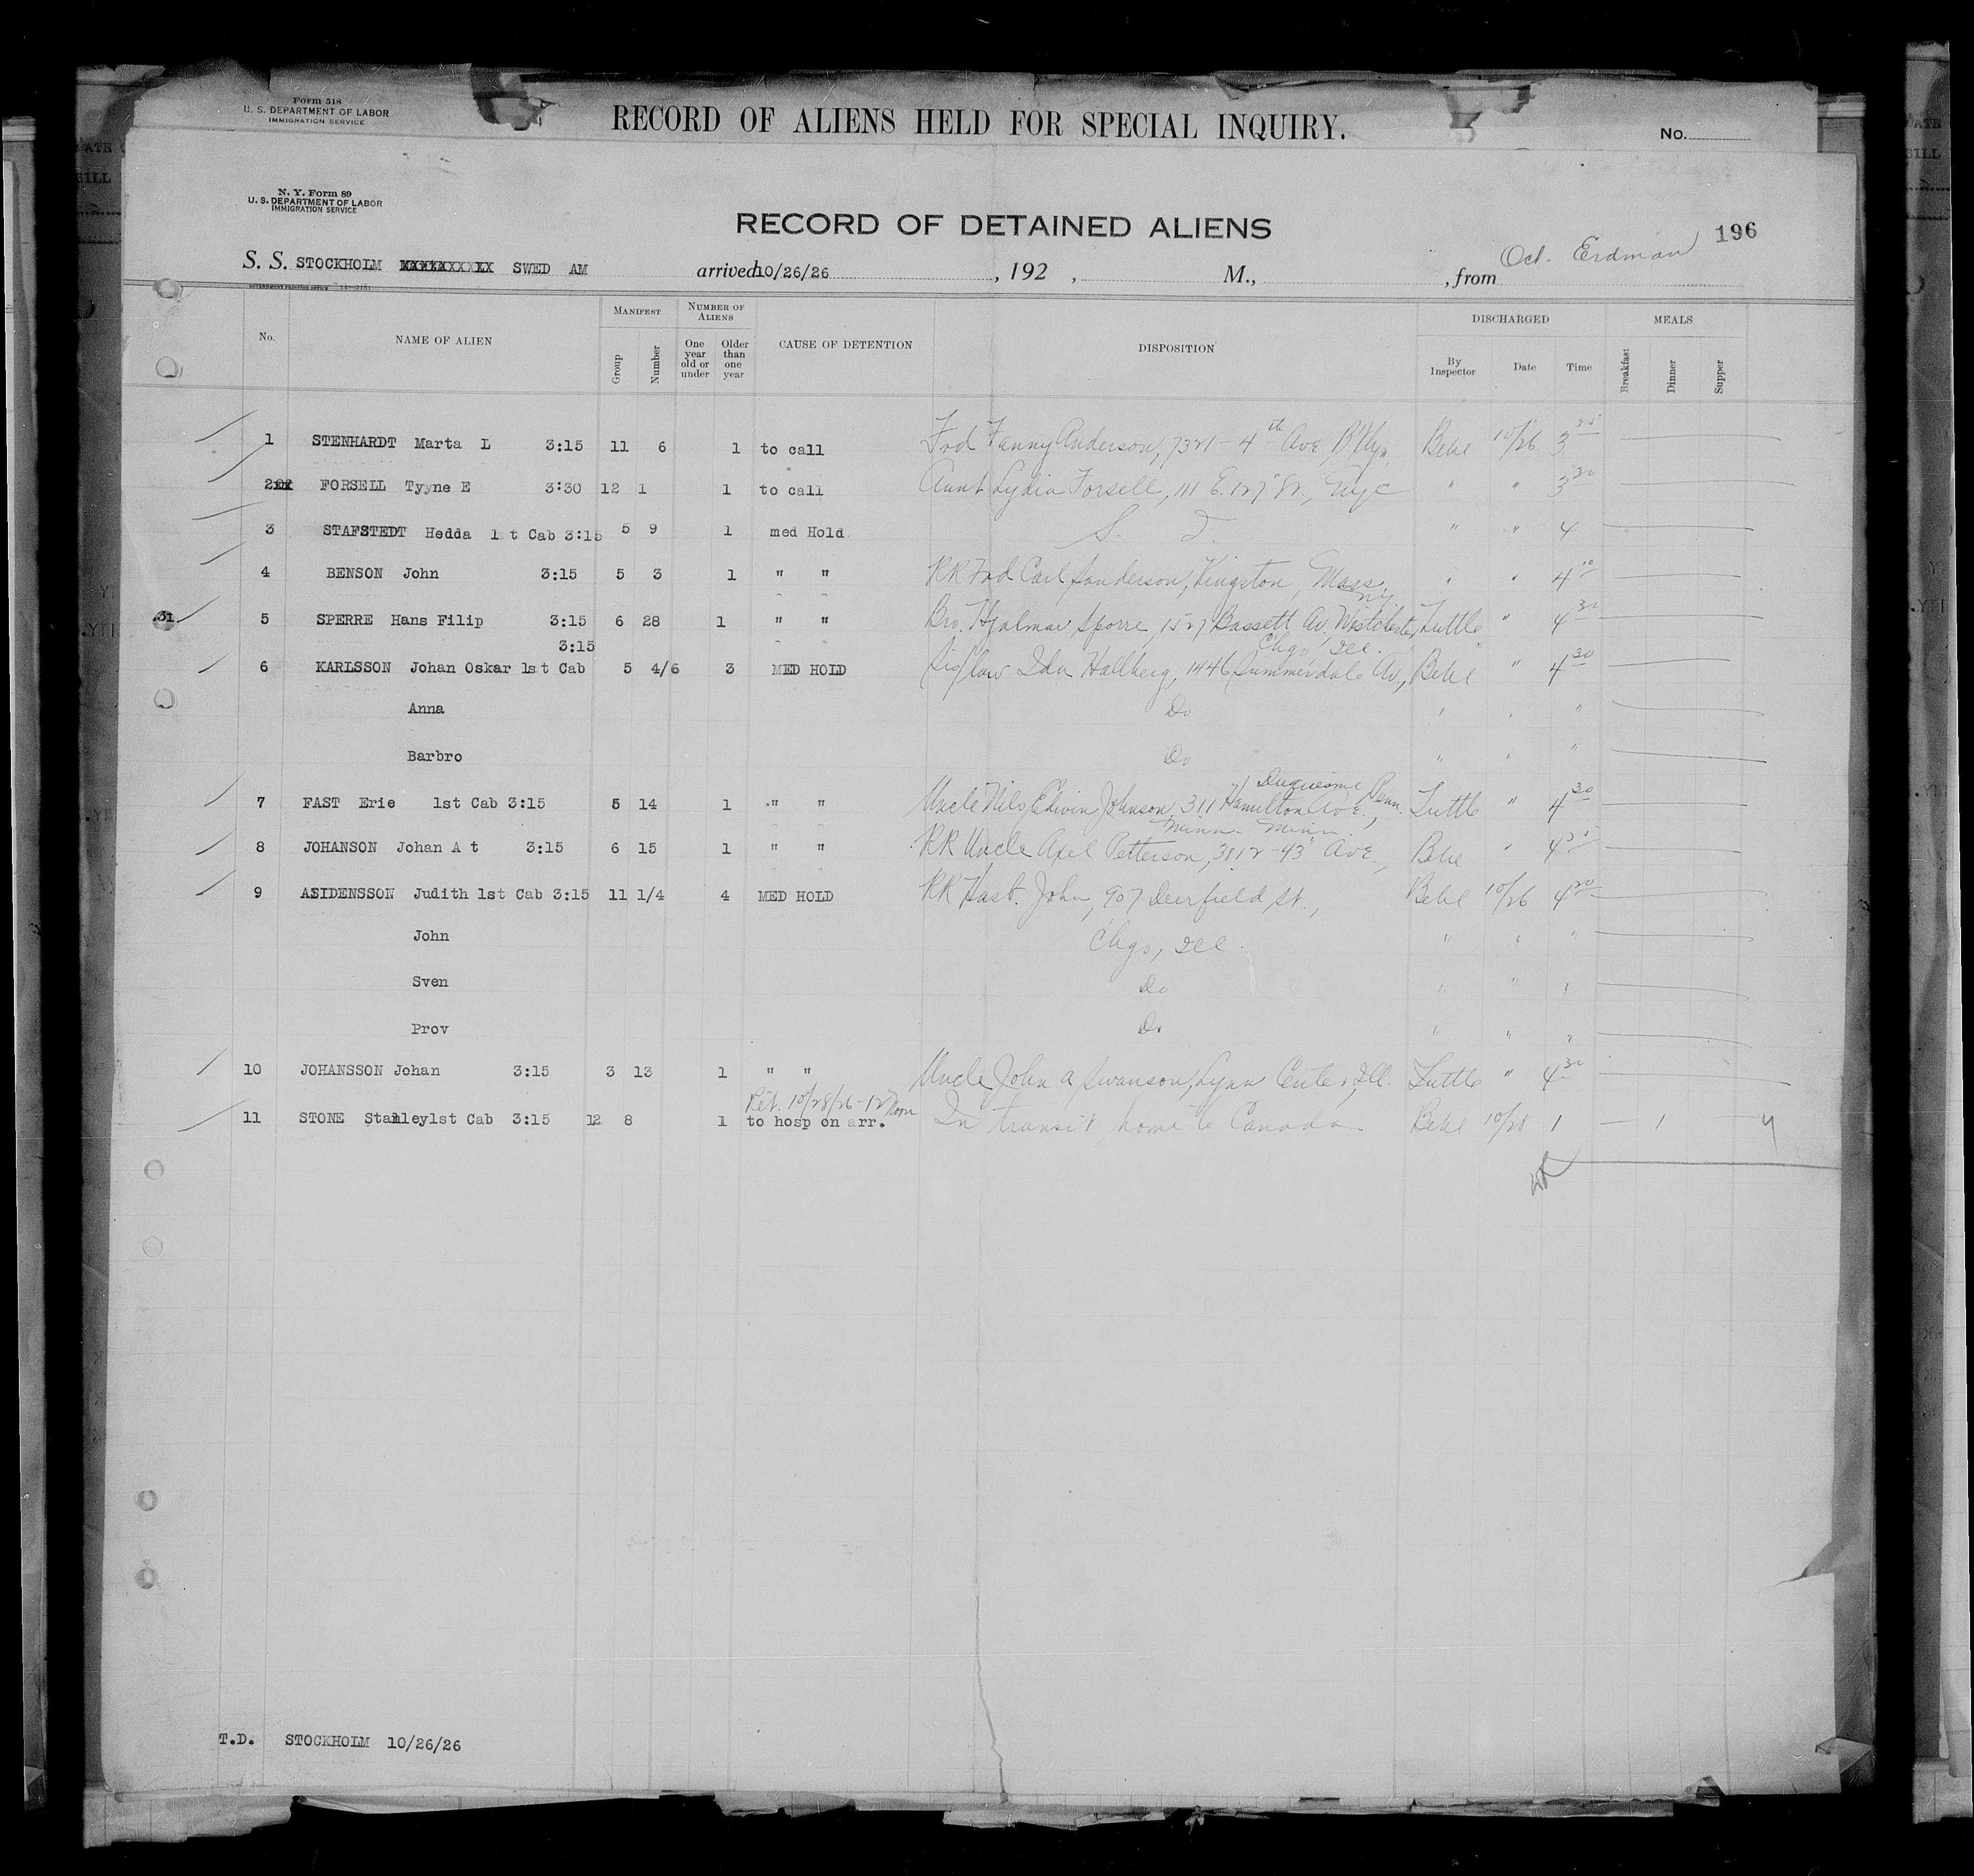 Form 518
U. S. DEPARTMENT OF LABOR
IMMIGRATION SERVICE
RECORD OF ALIENS HELD FOR SPECIAL INQUIRY.
No.
N. Y. Form 89
U. S. DEPARTMENT OF LABOR
IMMIGRATION SERVICE
RECORD OF DETAINED ALIENS
196
S. S. STOCKHOLM SWED AM arrived 10/26/26, 192 , M., , from Oct. Erdman
No. NAME OF ALIEN MANIFEST Group Number NUMBER OF ALIENS One year old or under Older than one year CAUSE OF DETENTION DISPOSITION DISCHARGED By Inspector Date Time MEALS Breakfast Dinner Supper
1 STENHARDT Marta L 3:15 11 6 1 to call Frd Fanny Anderson, 7321 - 4th Ave, B'klyn, Behe 10/26 3 25
2 FORSELL Tyyne E 3:30 12 1 1 to call Aunt Lydia Forsell, 111 E. 127" St., NYC " " 3 30
3 STAFSTEDT Hedda 1 t Cab 3:15 5 9 1 med Hold S. I. " " 4
4 BENSON John 3:15 5 3 1 " " RR Frd Carl Sanderson, Kingston, Mass. " " 4 10
NY
31 5 SPERRE Hans Filip 3:15 6 28 1 " " Bro. Hjalmar Sporre, 1527 Bassett Av. Westchester, Tuttle " 4 30
3:15 Chgo, Ill.
6 KARLSSON Johan Oskar 1st Cab 5 4/6 3 MED HOLD Sis/law Ida Hallberg, 1446 Summerdale Av., Behe " 4 30
Anna Do " " "
Barbro Do " " "
Duquesne, Penn.
7 FAST Erie 1st Cab 3:15 5 14 1 " " Uncle Nils Edwin Johnson, 311 Hamilton Ave., Tuttle " 4 30
Minn. Minn.
8 JOHANSON Johan A t 3:15 6 15 1 " " RR Uncle Axel Petterson, 3812 - 43" Ave., Behe "
9 ASIDENSSON Judith 1st Cab 3:15 11 1/4 4 MED HOLD RR Husb. John, 907 Deerfield St., Behe 10/26 4 20
John Chgo, Ill. " " "
Sven Do " " "
Prov Do " " "
10 JOHANSSON Johan 3:15 3 13 1 " " Uncle John A Swanson, Lynn Center, Ill. Tuttle " 4 30
Ret. 10/28/26 - 12 Noon
11 STONE Stanley 1st Cab 3:15 12 8 1 to hosp on arr. In transit home to Canada Behe 10/28 1 — 1
T.D. STOCKHOLM 10/26/26